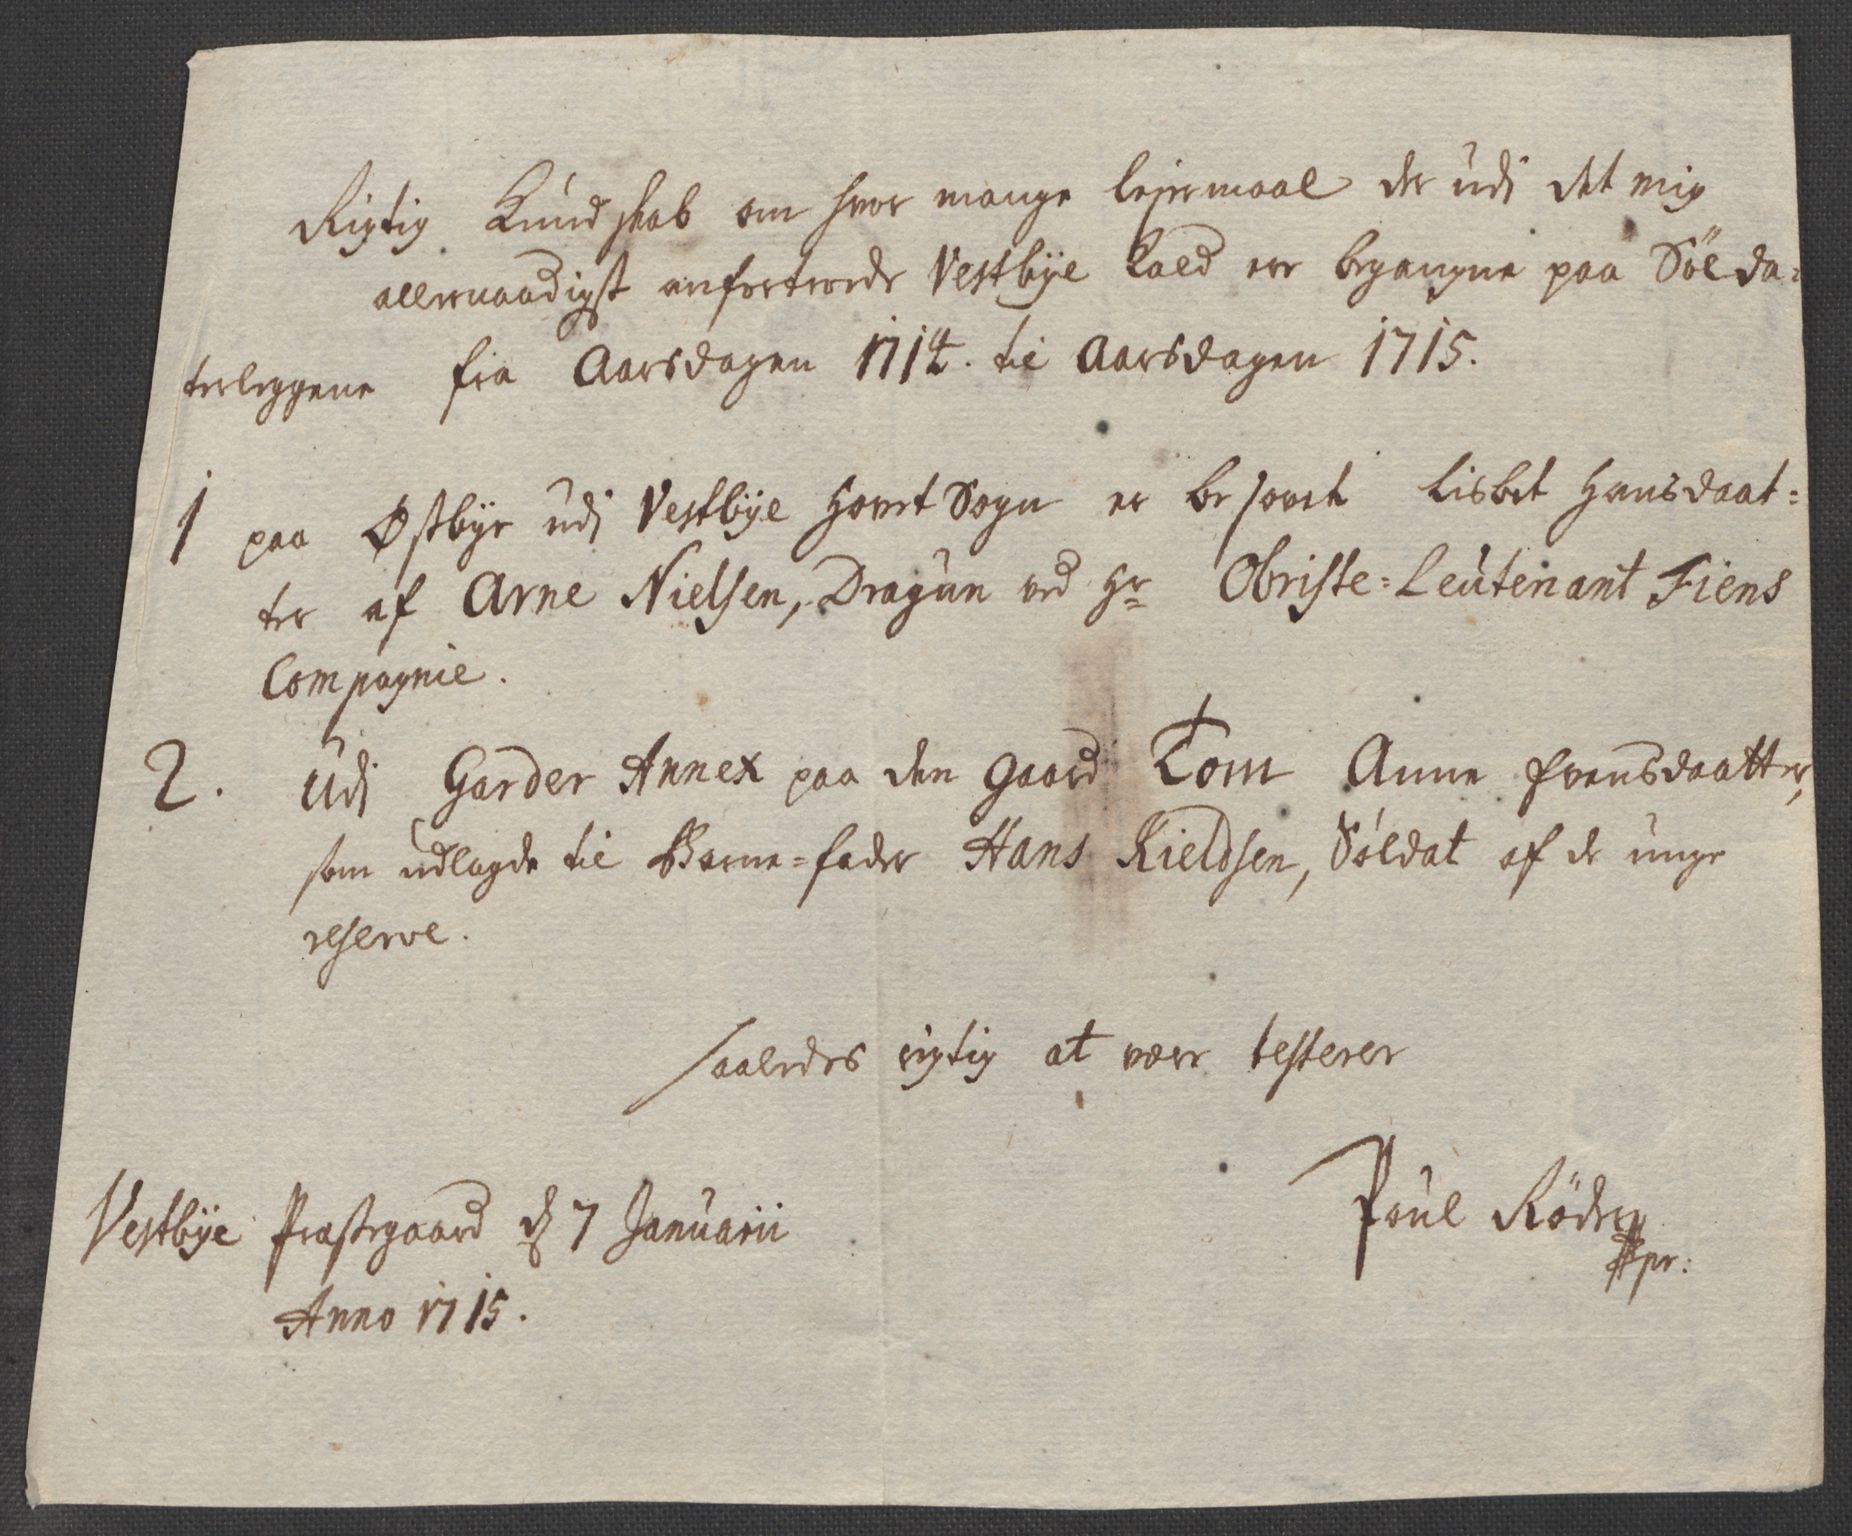 Rigtig Kundskab om hvor mange lejermaal der udi det mig
allernaadigst anfortroede Vestbÿe Kald ere begangne paa Solda=
terleggene fra Aarsdagen 1714. til Aarsdagen 1715.
1 paa Østbÿe udi Vestbÿe Hovet Sogn er besovet Lisbet Hansdaat=
ter af Arne Nielsen, Dragun ved Hr Obriste=Leutenant Fiens
Compagnie.
2. Udi Garder Annex paa den Gaard Tom Anne Svensdaatter,
som udlagde til Barne=fader Hans Kieldsen, Soldat af de unge
reserve.
saaledes rigtig at være testerer
Vestbÿe Præstegaard d 7 Januarii
Anno 1715.
Poul Röder